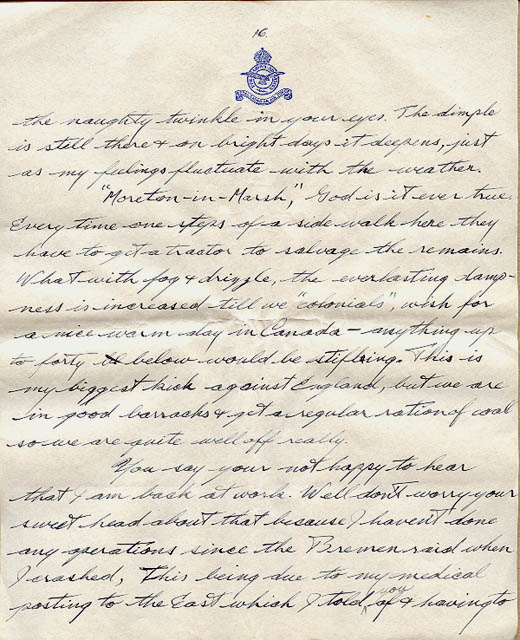 16.
the naughty twinkle in your eyes. The dimple
is still there & on bright days it deepens, just
as my feelings fluctuate with the weather.
"Moreton-in-Marsh," God is it ever true.
Every time one steps of a side walk here they
have to get a tractor to salvage the remains.
What with fog & drizzle, the everlasting damp-
ness is increased till we "colonials", wish for
a nice warm day in Canada - anything up
to forty below would be stifling. This is
my biggest kick against England, but we are
in good barracks & get a regular ration of coal
so we are quite well off really.
You say your not happy to hear
that I am back at work. Well don't worry your
sweet head about that because I haven't done
any operations since the Bremen raid when
I crashed, This being due to my medical
posting to the East which I told you of & having to